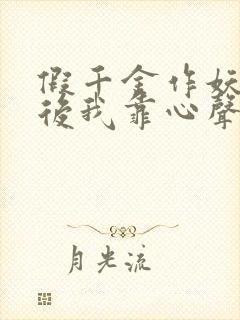 假千金作妖
後我靠心聲
月光流